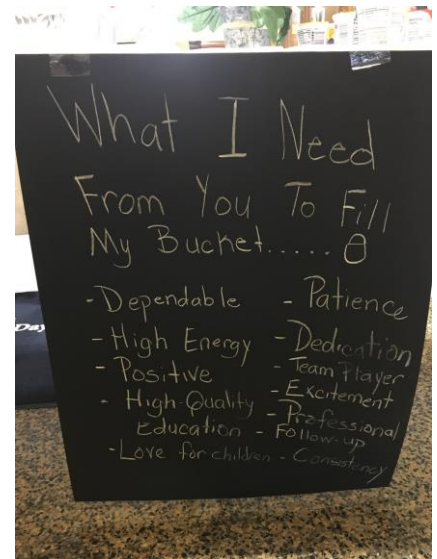 What I Need
From You To Fill
My Bucket.....
- Dependable
- High Energy
- Positive
- High-Quality
Education
- Love for children
- Patience
- Dedication
- Team Player
- Excitement
- Professional
- Follow-up
- Consistency
Day